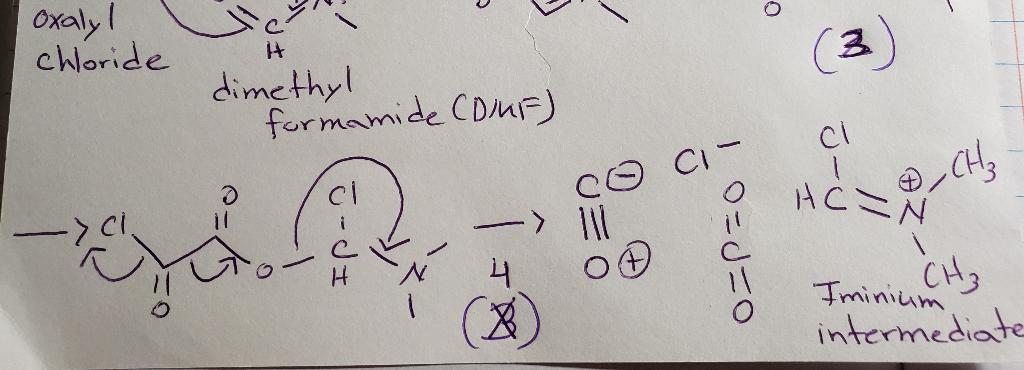 oxalyl
chloride
C
H
dimethyl
formamide (DMF)
O
(3)
Cl
O
O
O
Cl
C
H
N
4
(3)
C⊖
O⊕
Cl⁻
O
C
O
Cl
HC
⊕
N
CH₃
CH₃
Iminium
intermediate